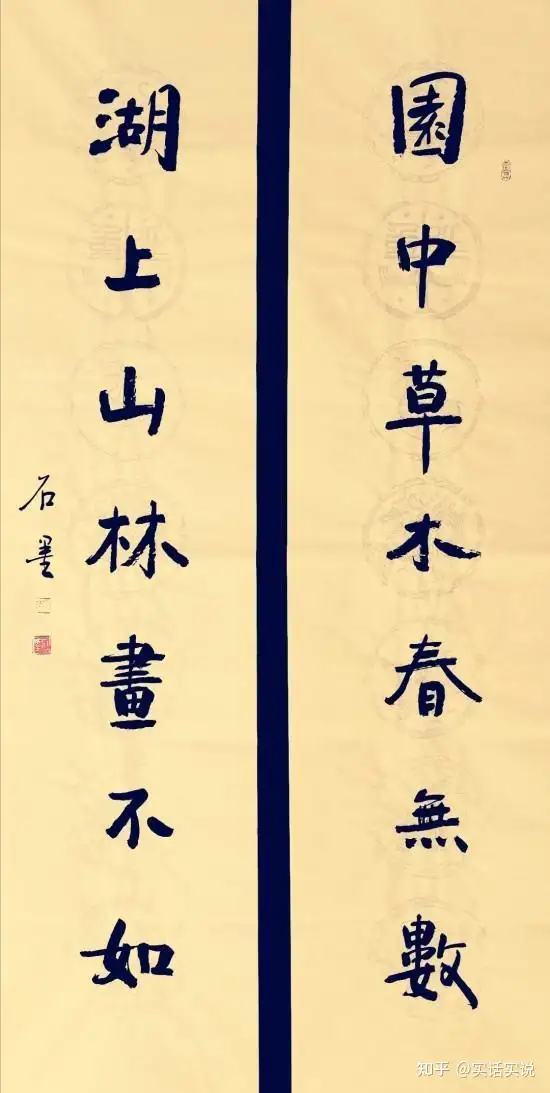 園中草木春無數
湖上山林畫不如
石墨
知乎 @实话实说